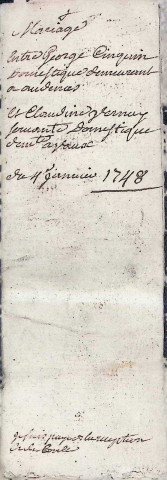 Mariage
Entre George Cinquin
domestique demeurant
a audenas
Et Claudine Vernay
servante domestique
demt a
du 4e janvier 1748
de la reception